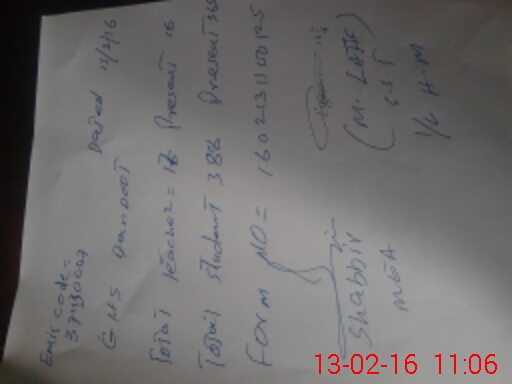 Emis code =
GHS Dandoot Dated 13/2/16
Total teacher = 17 Present 16
Total student 388 Present
Form NO =
Shabbir
MEA
(M. Latif)
S.S.T
I/c H.M
13-02-16 11:06